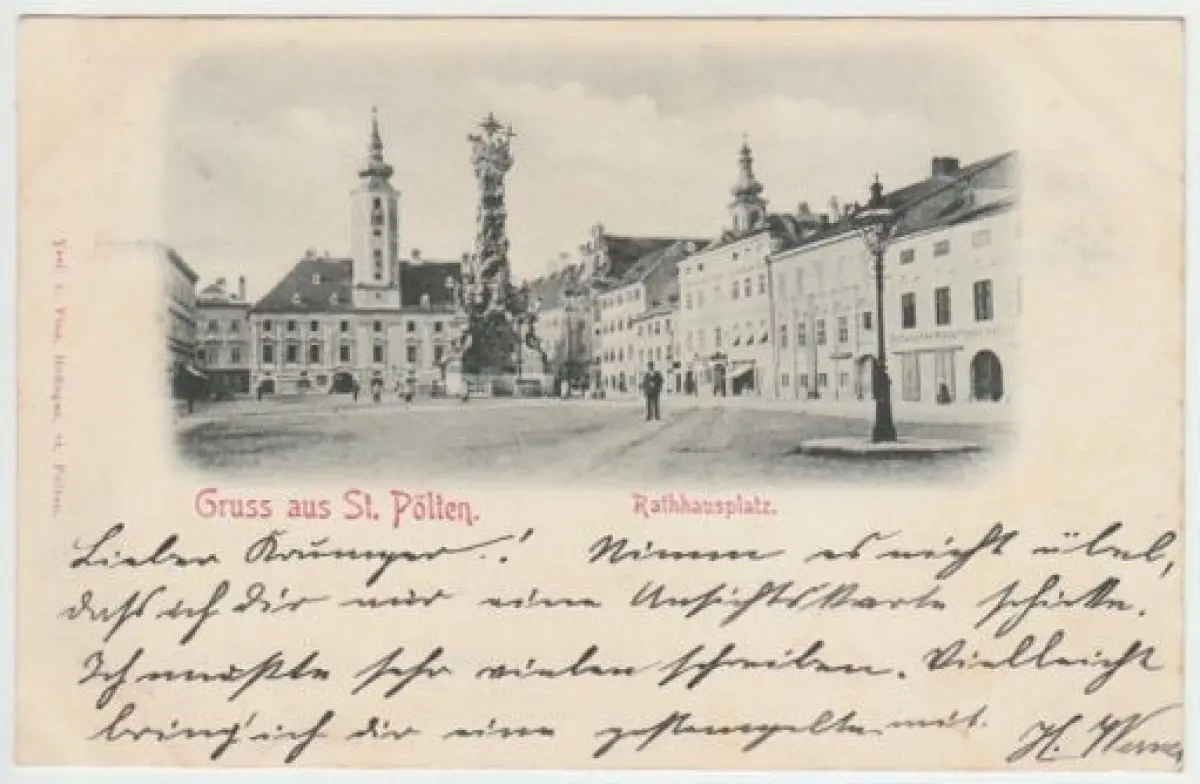 Gruss aus St. Pölten.
Rathhausplatz.
Lieber! Nimm es nicht übel,
dass ich dir nur eine Ansichtskarte schicke.
Ich musste sehr vielen schreiben. Vielleicht
bring' ich dir eine gestempelte mit.
H. Werner
St. Pölten.